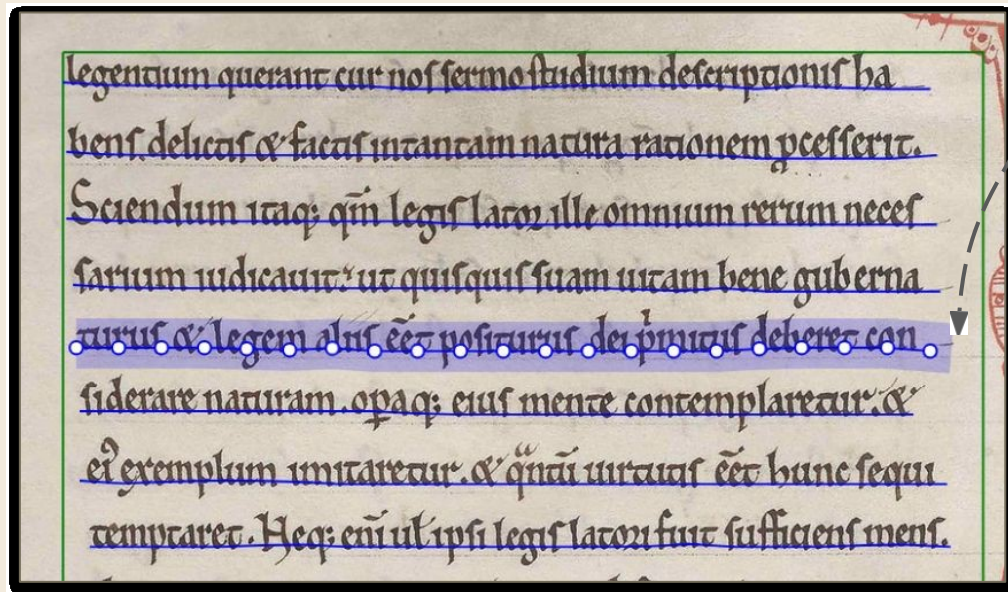 legentium querant cur nos sermo studium descriptionis ha
bens. delictis & factis intantam natura rationem ꝓcesserit.
Sciendum itaq; qm̄ legis lator ille omnium rerum neces
sarium iudicauit: ut quisquis suam uitam bene guberna
turus & legem aliis eēt positurus dei pͥmitus deberet con
siderare naturam. opaꝗ; eius mente contemplaretur. &
exemplum imitaretur. & uirtutis eēt hunc sequi
temptaret. Neq; eni̅ ul ipsi legis latori fuit sufficiens mens.